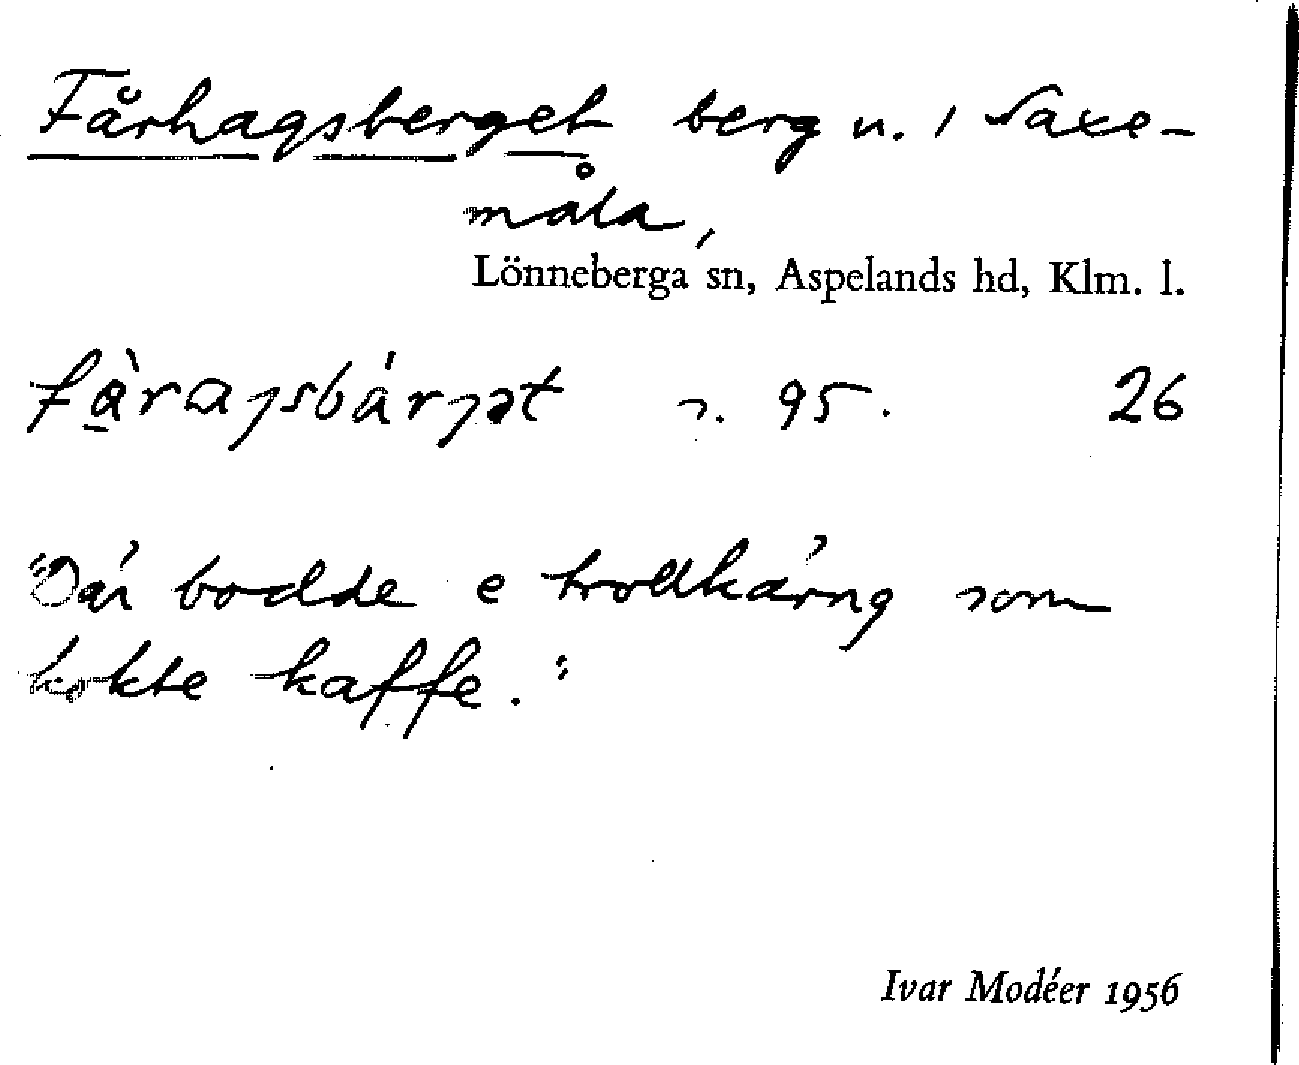 Fårhagsberget berg u. 1 Saxe-
måla,
Lönneberga sn, Aspelands hd, Klm. l.
s. 95. 26
"Där bodde e trollkärng som
kokte kaffe."
Ivar Modéer 1956